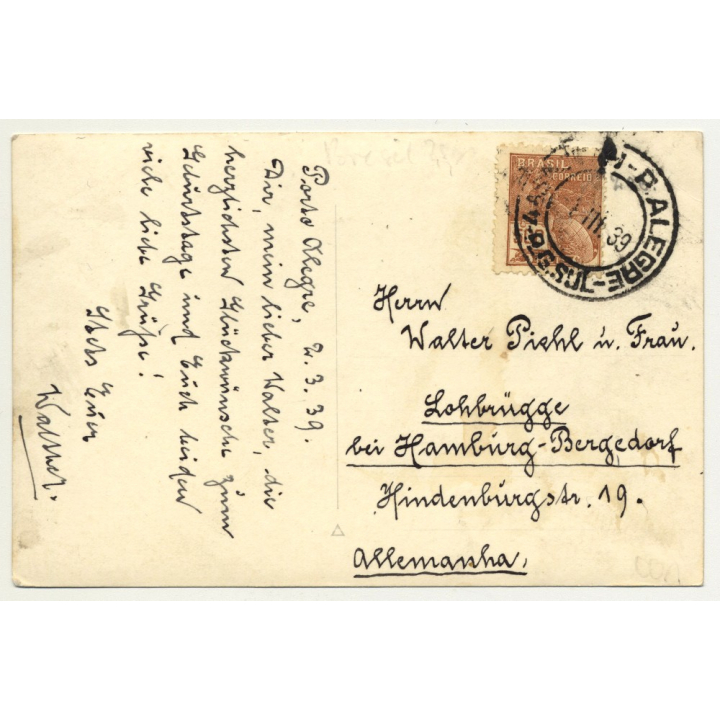 Porto Alegre, 2. 3. 39.
Dir, mein lieber Walter, die
herzlichsten Glückwünsche zum
Geburtstage und Euch beiden
viele liebe Grüße!
Stets Euer
Walther.
BRASIL
CORREIO
P. ALEGRE
R.G.SUL
III 39
Herrn
Walter Piehl u. Frau.
Lohbrügge
bei Hamburg-Bergedorf
Hindenburgstr. 19.
Allemanha,